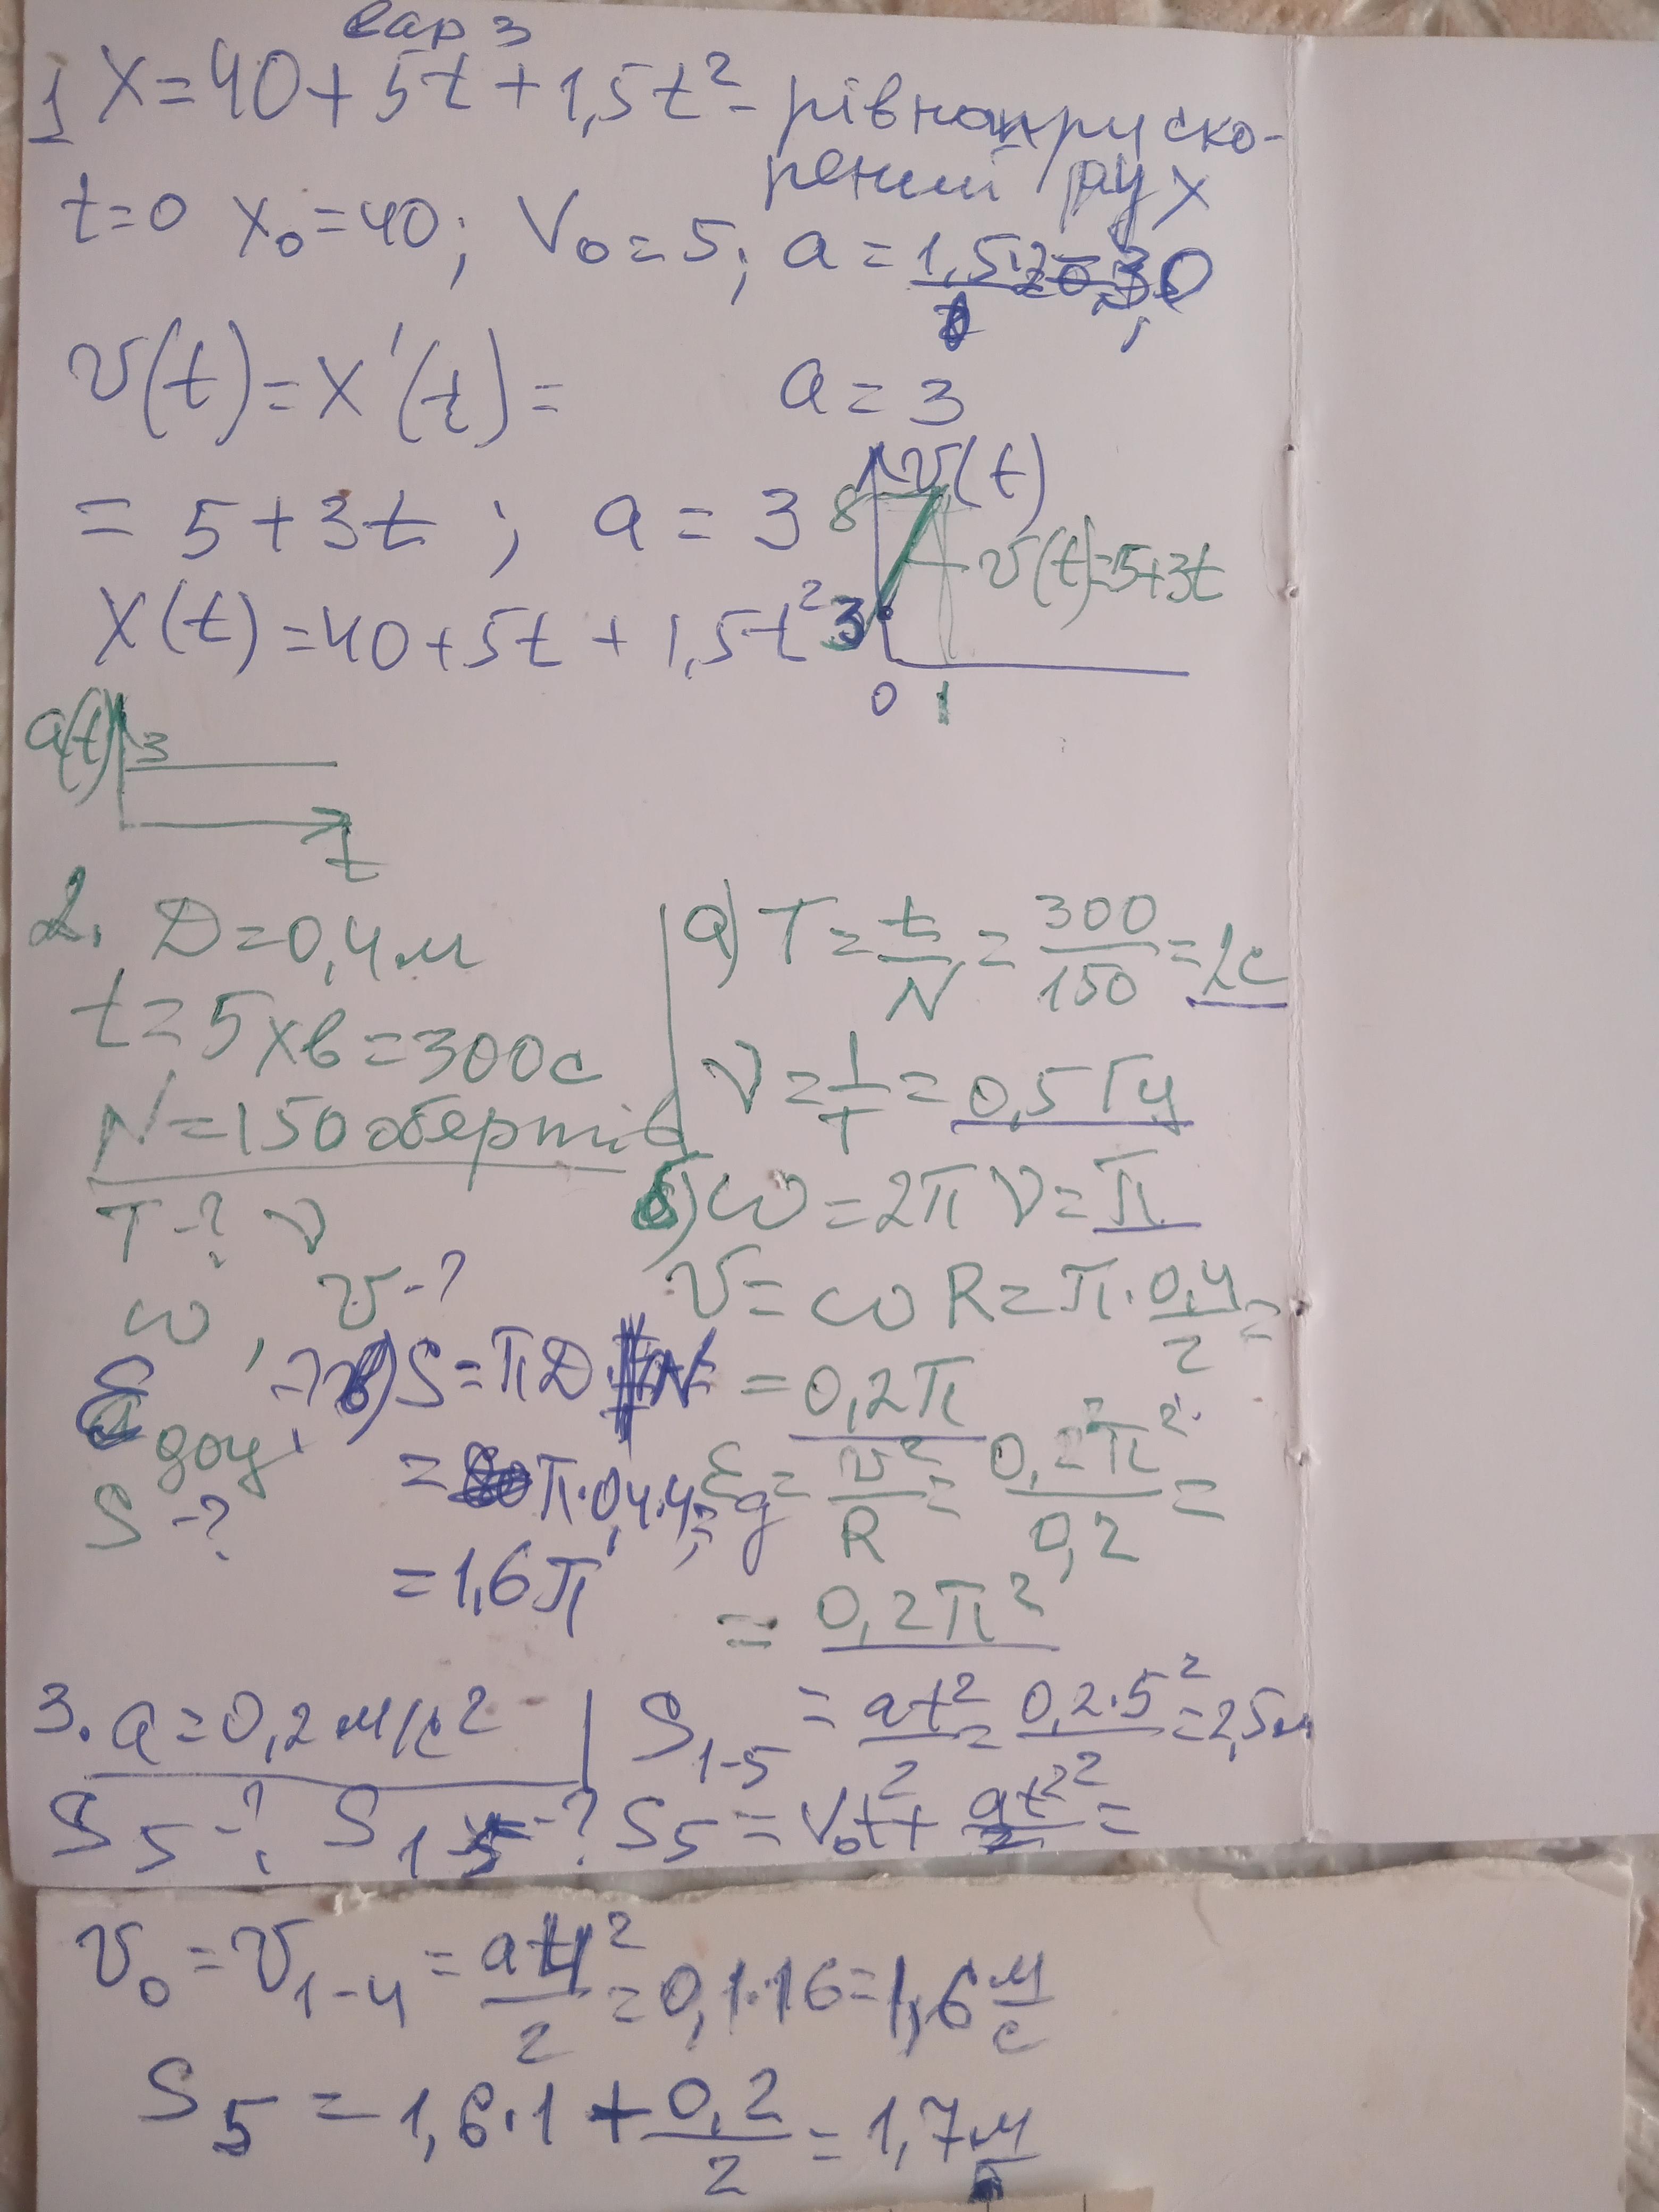 вар 3
1 X = 40 + 5t + 1,5t² - рівноприско-
рений рух
t = 0 x₀ = 40; V₀ = 5; a = 1,5·2
v(t) = x'(t) = a = 3
= 5 + 3t ; a = 3
x(t) = 40 + 5t + 1,5t²
v(t)
8
v(t) = 5 + 3t
3
0 1
a(t) 3
t
2. D = 0,4 м
t = 5 хв = 300 с
N = 150 обертів
T - ? ν
ω , v - ?
доц.
S - ?
а) T = t/N = 300/150 = 2с
ν = 1/T = 0,5 Гц
б) ω = 2π ν = π
v = ω R = π · 0,4/2 =
= 0,2π
= v²/R = 0,2²π²/0,2 =
= 0,2π²
в) S = πD · N
= π·0,4·4 =
= 1,6π
3. a = 0,2 м/с²
S₅ - ? S₁₋₅ - ?
S₁₋₅ = at²/2 = 0,2·5²/2 = 2,5м
S₅ = V₀t + at²/2 =
v₀ = v₁₋₄ = at²/2 = 0,1·16 = 1,6 м/с
S₅ = 1,6·1 + 0,2/2 = 1,7 м